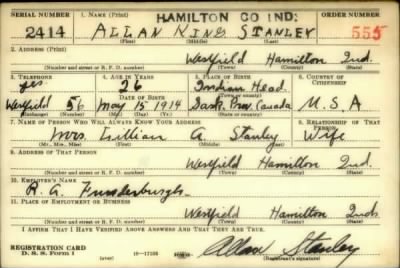 SERIAL NUMBER 1. NAME (Print) HAMILTON CO IND: ORDER NUMBER
2414 ALLAN KING STANLEY 555
(First) (Middle) (Last)
2. ADDRESS (Print)
Westfield Hamilton Ind.
(Number and street or R. F. D. number) (Town) (County) (State)
3. TELEPHONE 4. AGE IN YEARS 5. PLACE OF BIRTH 6. COUNTRY OF CITIZENSHIP
yes 26 Indian Head
DATE OF BIRTH (Town or county)
Westfield 56 May 15 1914 Sask. Prov. Canada U.S.A
(Exchange) (Number) (Mo.) (Day) (Yr.) (State or country)
7. NAME OF PERSON WHO WILL ALWAYS KNOW YOUR ADDRESS 8. RELATIONSHIP OF THAT PERSON
Mrs. Lillian A. Stanley Wife
(Mr., Mrs., Miss) (First) (Middle) (Last)
9. ADDRESS OF THAT PERSON
Westfield Hamilton Ind.
(Number and street or R. F. D. number) (Town) (County) (State)
10. EMPLOYER'S NAME
R. A. Funderburgh
11. PLACE OF EMPLOYMENT OR BUSINESS
Westfield Hamilton Ind
(Number and street or R. F. D. number) (Town) (County) (State)
I AFFIRM THAT I HAVE VERIFIED ABOVE ANSWERS AND THAT THEY ARE TRUE.
REGISTRATION CARD
D. S. S. Form 1 (over) 16—17105 Allan Stanley
(Registrant's signature)